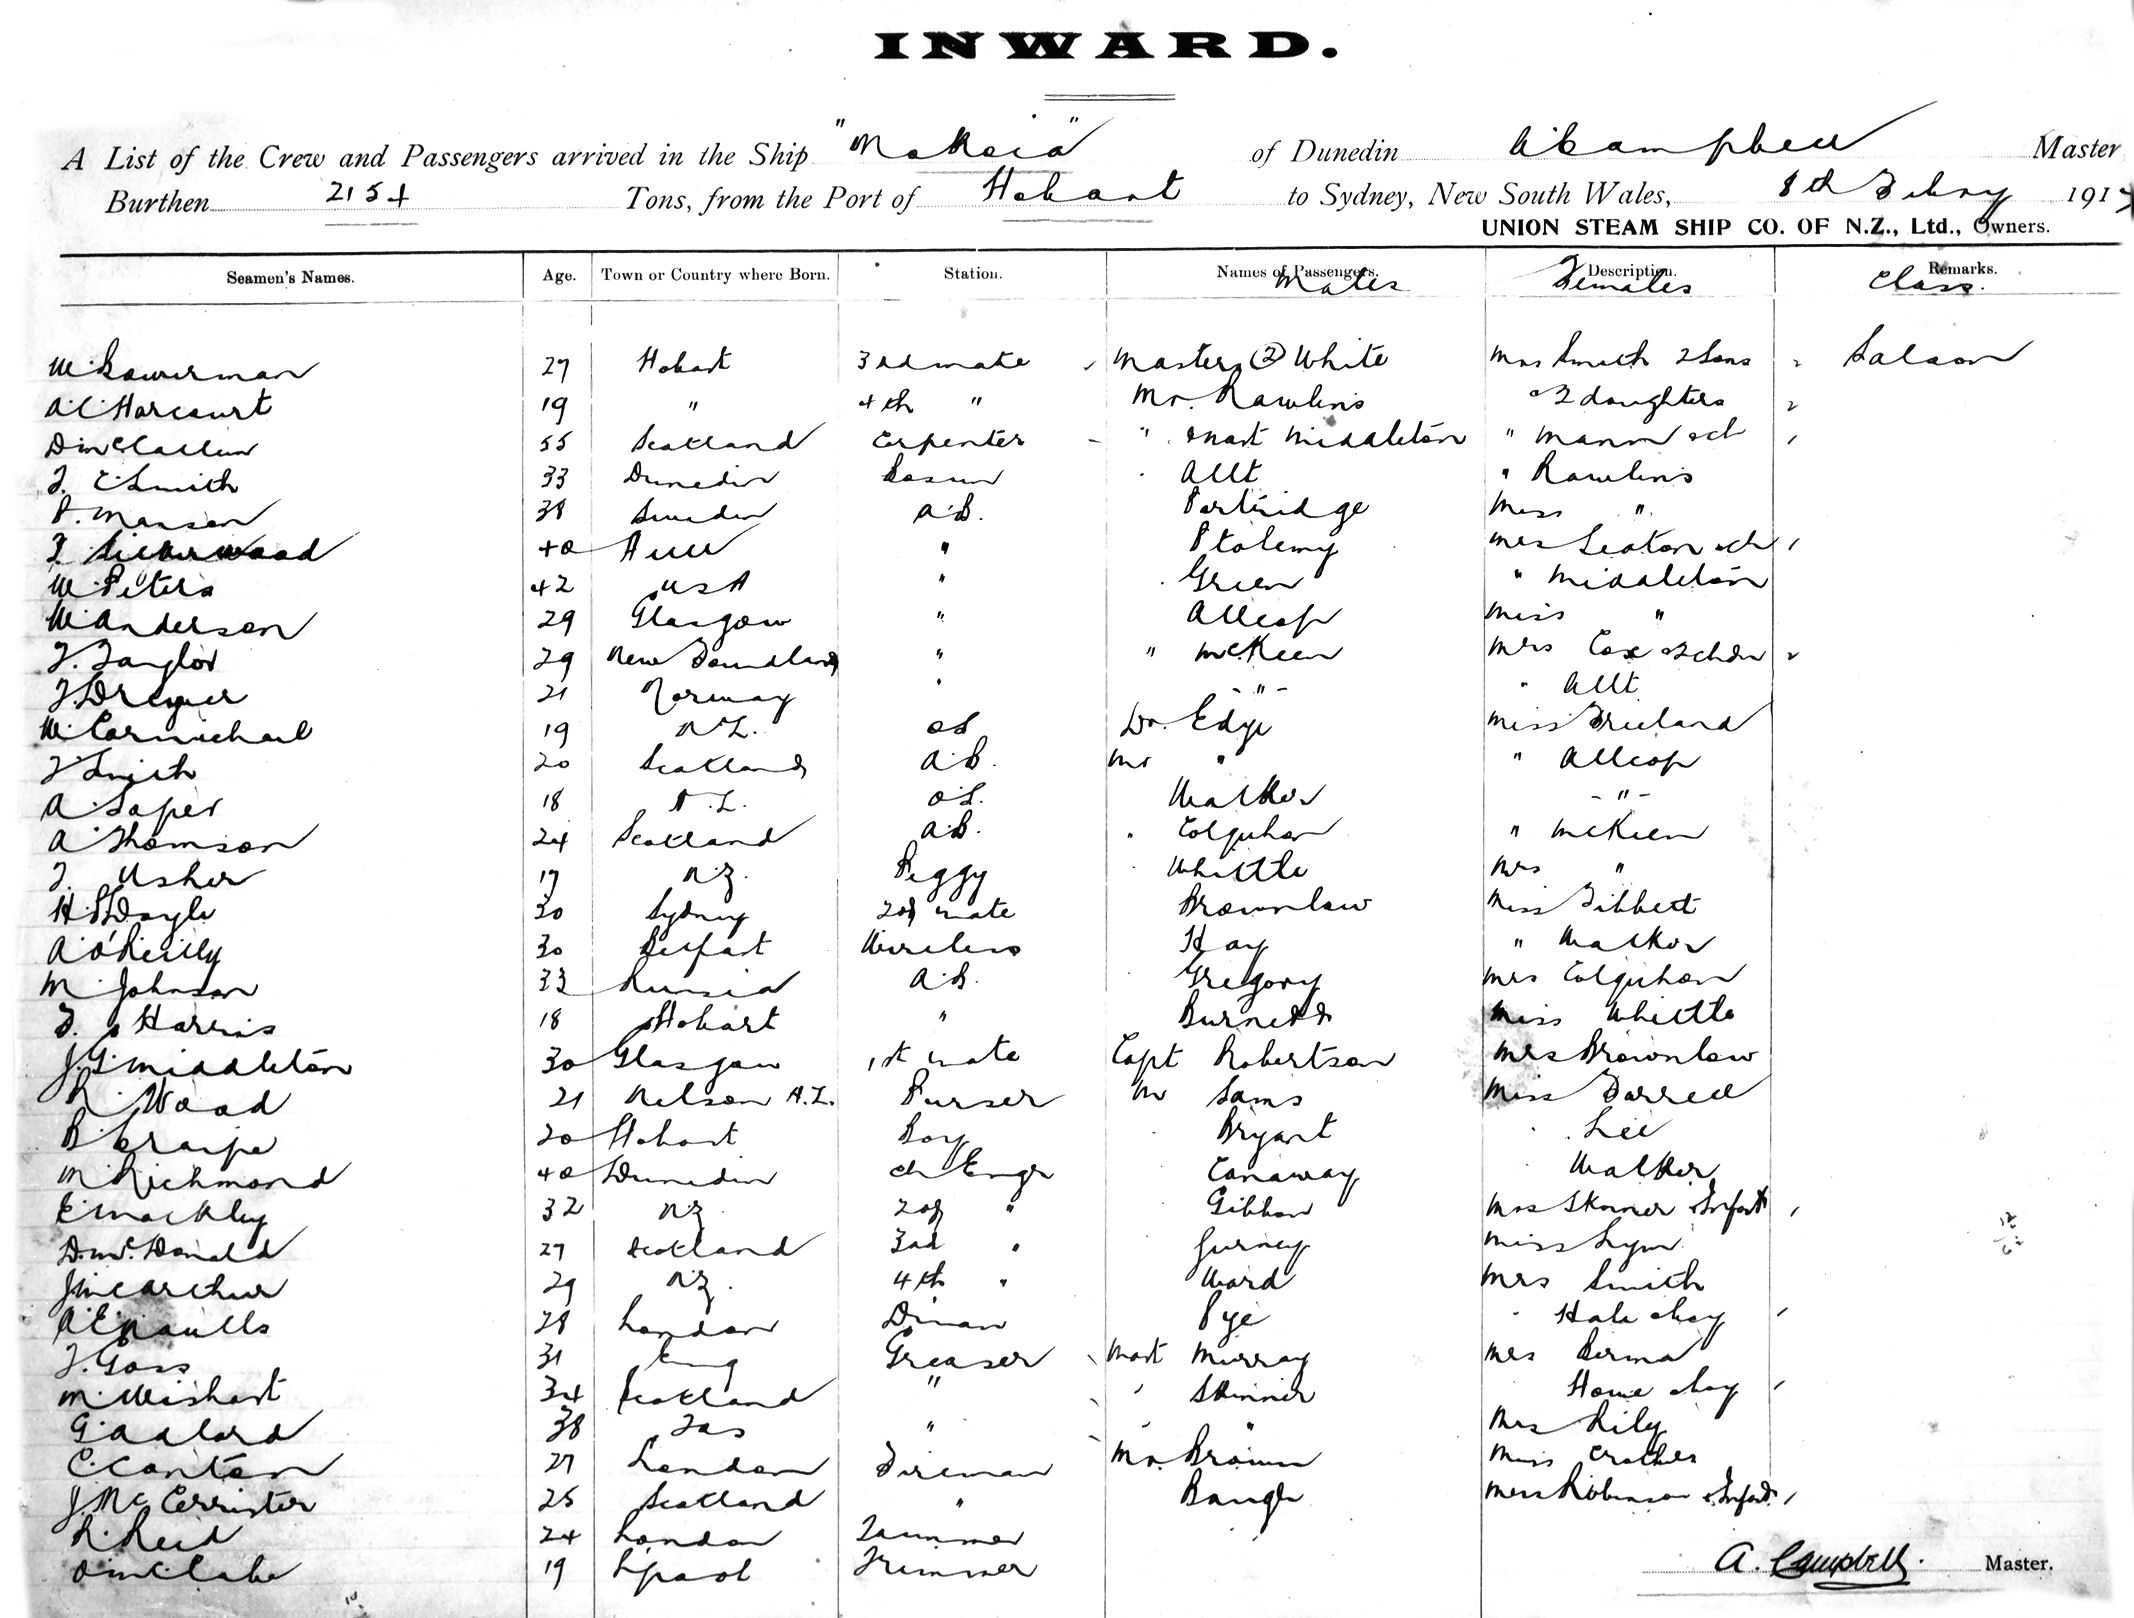 INWARD.
A List of the Crew and Passengers arrived in the Ship "Mokoia" of Dunedin A Campbell Master
Burthen 2154 Tons, from the Port of Hobart to Sydney, New South Wales, 8th Febry 1917
UNION STEAM SHIP CO. OF N.Z., Ltd., Owners.
Seamen's Names. Age. Town or Country where Born. Station. Names of Passengers. Description. Remarks.
Males Females Class.
W. Bowerman 27 Hobart 3rd mate Masters (2) White Mrs Smith 2 Sons Saloon
A.C. Harcourt 19 " 4th " Mr. Rawlins 2 daughters
55 Scotland Carpenter " Mast Middleton "
F. C. Smith 33 Dunedin Bosun Allt " Rawlins
P. Manson 38 Sweden A.B. Partridge Miss "
40 Hull " Ptolemy Mrs Seaton ch
W. Peters 42 USA " Green " Middleton
W. Anderson 29 Glasgow " Allcop Miss "
F. Taylor 29 New Foundland " " McKeen Mrs Cox
F. Dreyer 21 Norway " - " - " Allt
W. Carmichael 19 N Z. OS Dr. Edge Miss Freeland
F Smith 20 Scotland A.B. Mr " " Allcop
A. Soper 18 N.Z. O.S. Walker - " -
A Thomson 24 Scotland A.B. " Colquhon " McKeen
F. Usher 17 N.Z. Peggy Whittle Mrs "
H. P. Doyle 30 Sydney 2nd mate Brownlow Miss Tibbett
A. O'Reilly 30 Belfast Wireless Hay " Walker
M. Johnson 33 Russia A.B. Gregory Mrs Colquhon
F. Harris 18 Hobart " Burnett Miss Whittle
J.G. Middleton 30 Glasgow 1st mate Capt Robertson Mrs Brownlow
R. Wood 21 Nelson N.Z. Purser Mr Sams Miss Farrell
20 Hobart Boy Bryant Lee
M. Richmond 40 Dunedin ch Engr Canaway Walker
E Mackley 32 N.Z 2nd " Gibbon Mrs Skinner & Infant
D. McDonald 27 Scotland 3rd " Gurney Miss Lym
J McArthur 29 N.Z. 4th " Ward Mrs Smith
28 London Pye Hale
F. Goss 31 Eng Greaser Mast Murray Mrs
M. Wishart 34 Scotland " " Skinner Howe
G Adlard 38 Tas " " " Mrs Lily
C. Canton 27 London Fireman Mr. Brown Miss Crother
J. McCerrister 25 Scotland " Baugh Mrs Robinson & Infant
R. Reid 24 London Trimmer
19 L'pool Trimmer
A. Campbell. Master.